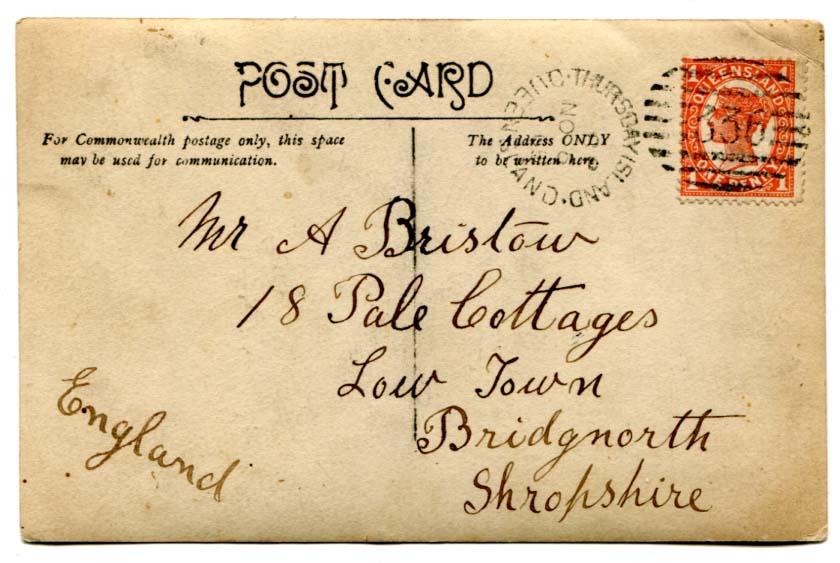 POST CARD
For Commonwealth postage only, this space
may be used for communication.
The Address ONLY
to be written here.
THURSDAY ISLAND · QUEENSLAND
NO
QUEENSLAND
ONE PENNY
1
1
1
1
Mr A Bristow
18 Pale Cottages
Low Town
Bridgnorth
Shropshire
England